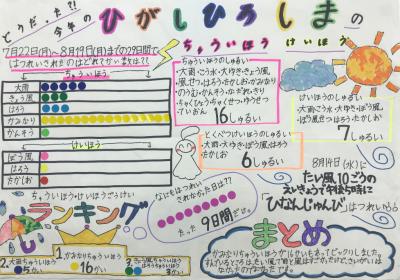 どうだった?!
今年の
ひがしひろしまの
ちゅういほう
けいほう
7月22日(月)〜8月19日(月)までの29日間で
はつれいされたのはどれで何かい
ちゅういほう
大雨
きょう風
はろう
かみなり
かんそう
けいほう
ぼう風
はろう
たかしお
ちゅういほうのしゅるい
・大雨・こう水・大ゆき・きょう風
・風せつ・はろう・たかしお・かみなり
・のうむ・かんそう・なだれ・しも
・ちゃくひょう・ちゃくせつ・ゆうせつ
・ていおん
16しゅるい
けいほうのしゅるい
大雨・こう水・大ゆき・ぼう風
・ぼう風せつ・はろう・たかしお
7しゅるい
とくべつけいほうのしゅるい
・大雨・大ゆき・ぼう風・はろう・
たかしお
6しゅるい
8月14日(水)に
たい風10ごうの
えいきょうで午後5時に
「ひなんじゅんび」
なにもはつれい
されなかった日は??
たった9日間だけ。
ちゅういほう・けいほうごうけい
ランキング
1.かみなりちゅういほう
16かい
2.大雨ちゅういほう
5かい
3.きょう風ちゅういほう
はろうちゅういほう
3かい
まとめ
かみなりちゅういほうが16かいもあってビックリしました。